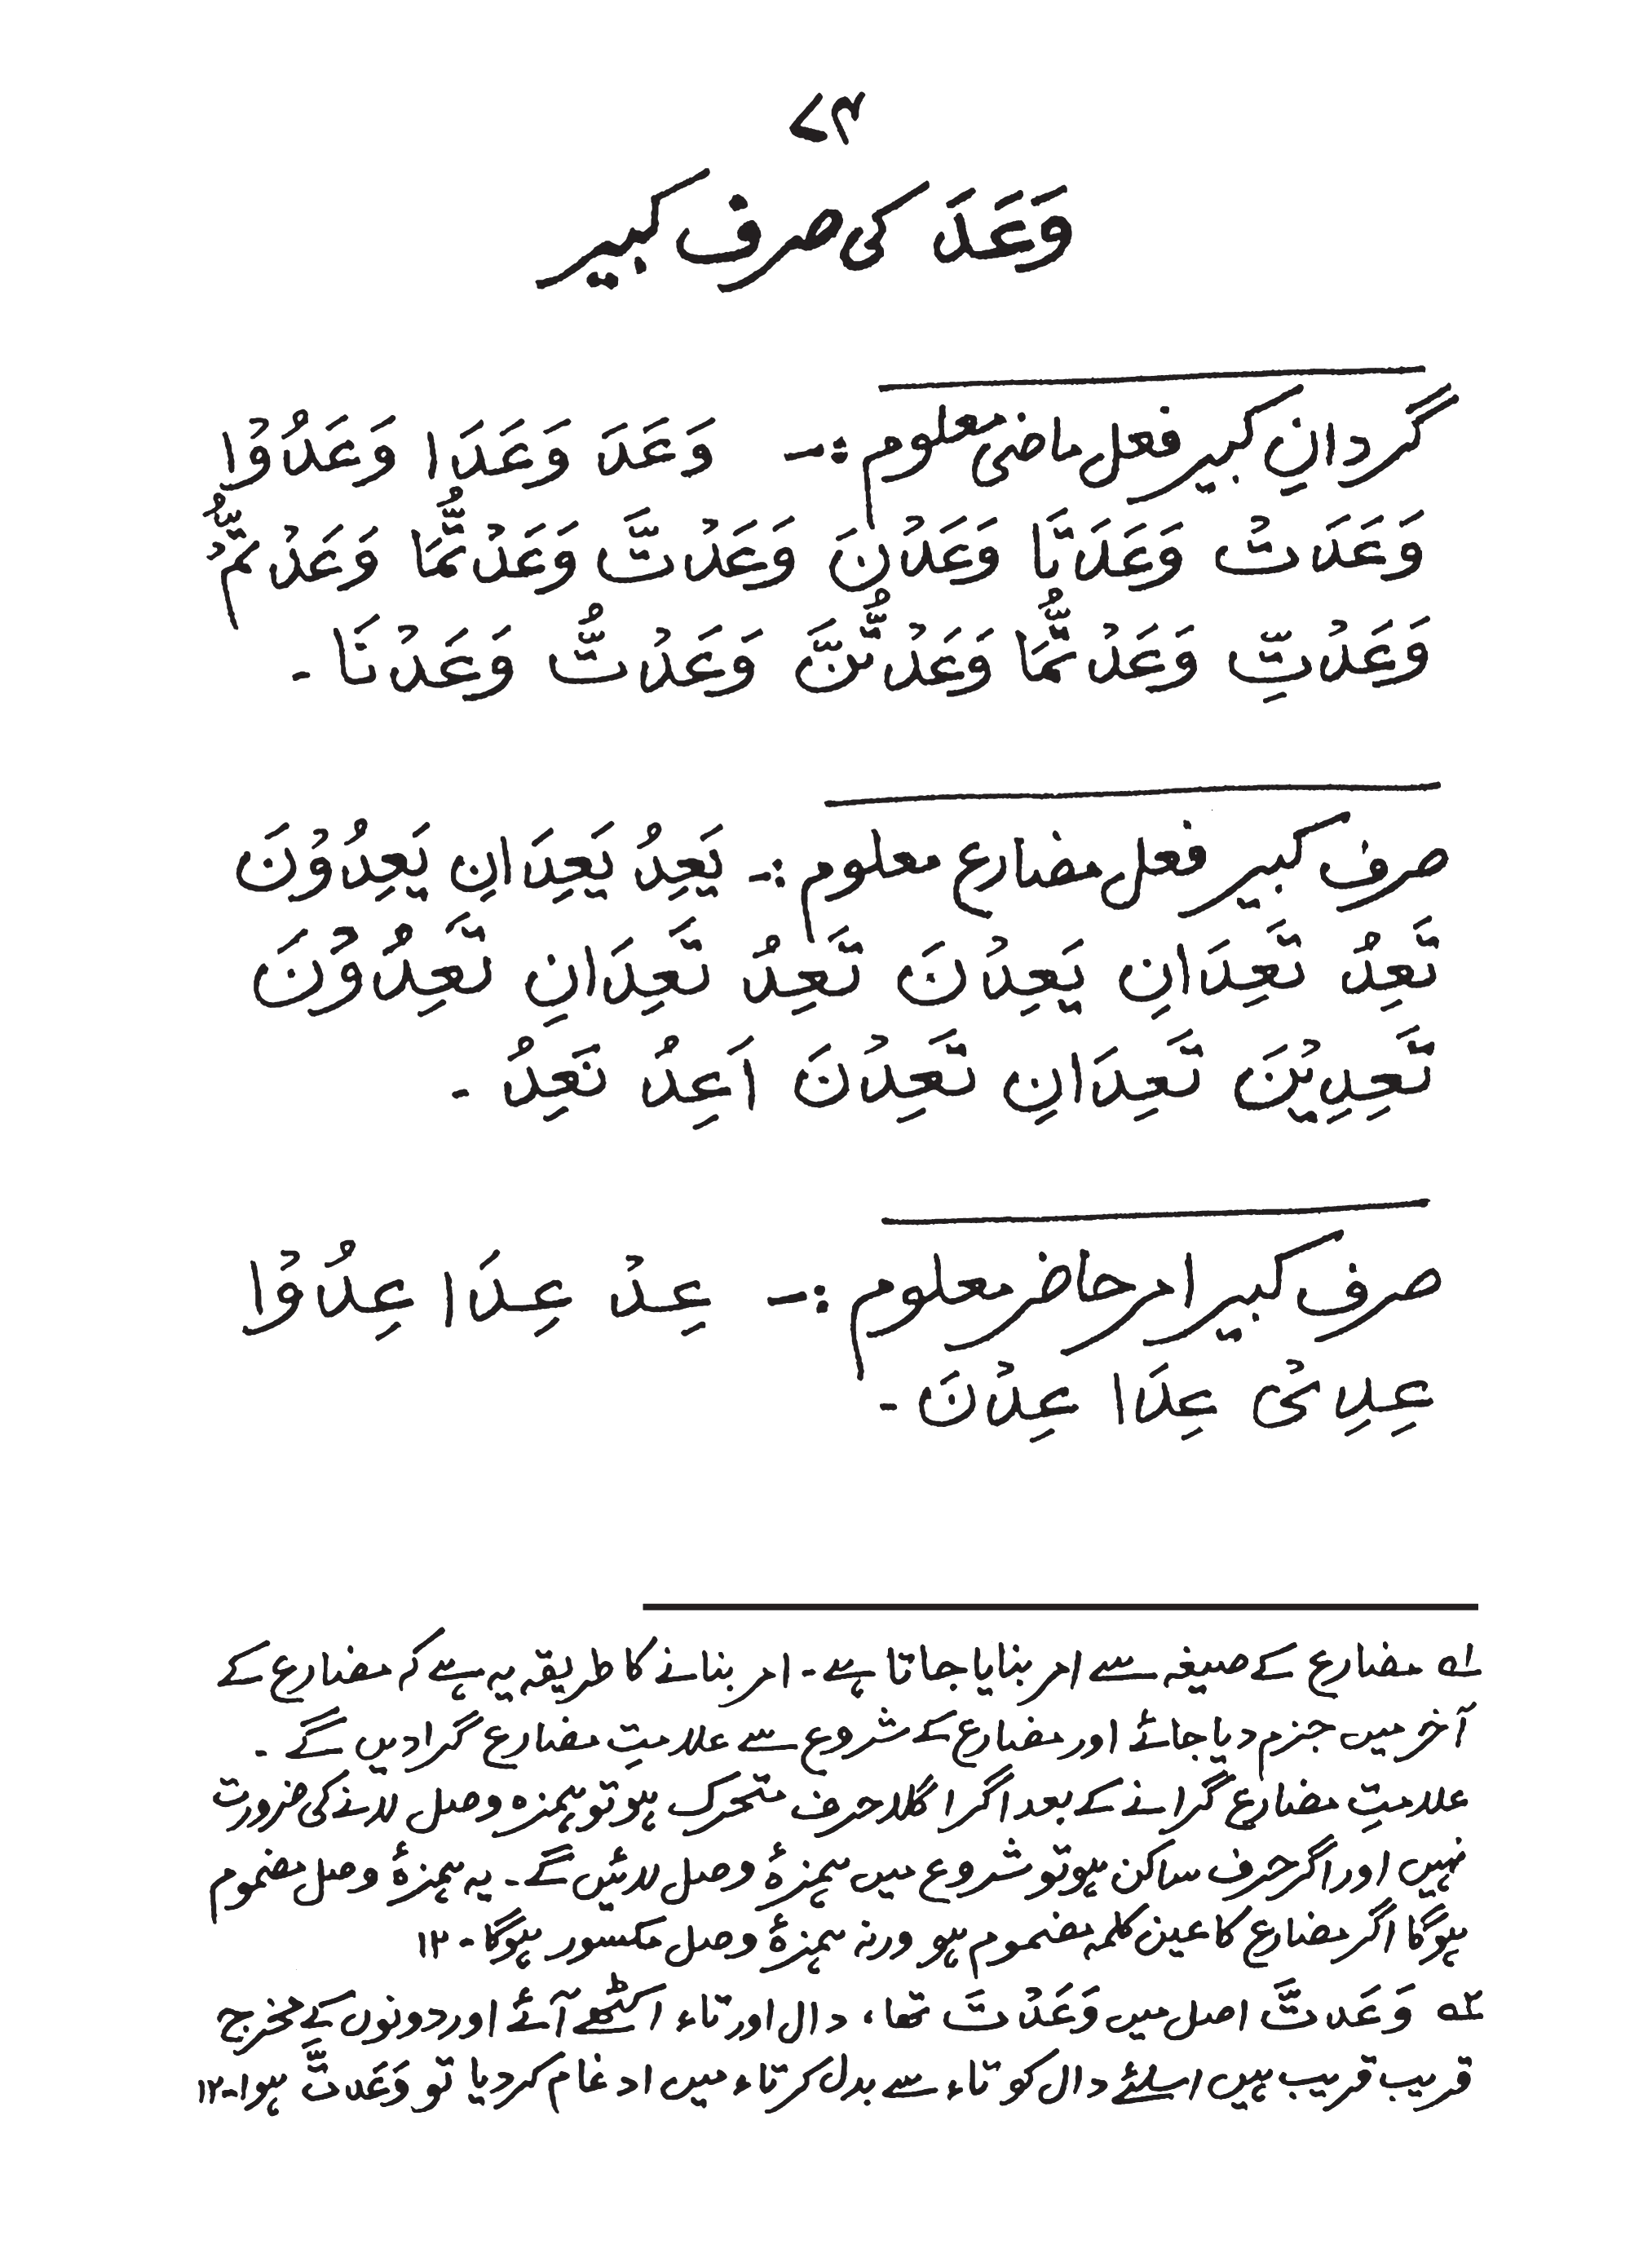 ۷۴
وَعَدَ کی صرف کبیر
گردانِ کبیر فعل ماضی معلوم :- وَعَدَ وَعَدَا وَعَدُوْا
وَعَدَتْ وَعَدَتَا وَعَدْنَ وَعَدْتَّ وَعَدْتُّمَا وَعَدْتُّمْ
وَعَدْتِّ وَعَدْتُّمَا وَعَدْتُّنَّ وَعَدْتُّ وَعَدْنَا ۔
صرف کبیر فعل مضارع معلوم :- یَعِدُ یَعِدَانِ یَعِدُوْنَ
تَعِدُ تَعِدَانِ یَعِدْنَ تَعِدُ تَعِدَانِ تَعِدُوْنَ
تَعِدِیْنَ تَعِدَانِ تَعِدْنَ اَعِدُ نَعِدُ ۔
صرف کبیر امر حاضر معلوم :- عِدْ عِدَا عِدُوْا
عِدِیْ عِدَا عِدْنَ ۔
۱ے مضارع کے صیغہ سے امر بنایا جاتا ہے ۔ امر بنانے کا طریقہ یہ ہے کہ مضارع کے
آخر میں جزم دیا جائے اور مضارع کے شروع سے علامتِ مضارع گرادیں گے ۔
علامتِ مضارع گرانے کے بعد اگر اگلا حرف متحرک ہو تو ہمزہ وصل لانے کی ضرورت
نہیں اور اگر حرف ساکن ہو تو شروع میں ہمزۂ وصل لائیں گے ۔ یہ ہمزۂ وصل مضموم
ہوگا اگر مضارع کا عین کلمہ مضموم ہو ورنہ ہمزۂ وصل مکسور ہوگا ۔ ۱۲
۲ے وَعَدتَّ اصل میں وَعَدْتَ تھا، دال اور تاء اکٹھے آئے اور دونوں کے مخرج
قریب قریب ہیں اسلئے دال کو تاء سے بدل کر تاء میں ادغام کردیا تو وَعَدتَّ ہوا ۔ ۱۲